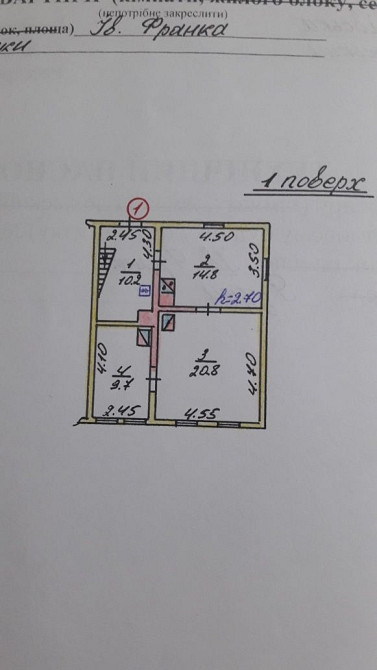 (непотрібне закреслити)
ок, площа) Ів. Франка
1 поверх
1
2.45
4.30
4.50
3.50
1
10.2
2
14.8
h=2.70
4.10
4
9.7
3
20.8
4.70
2.45
4.55